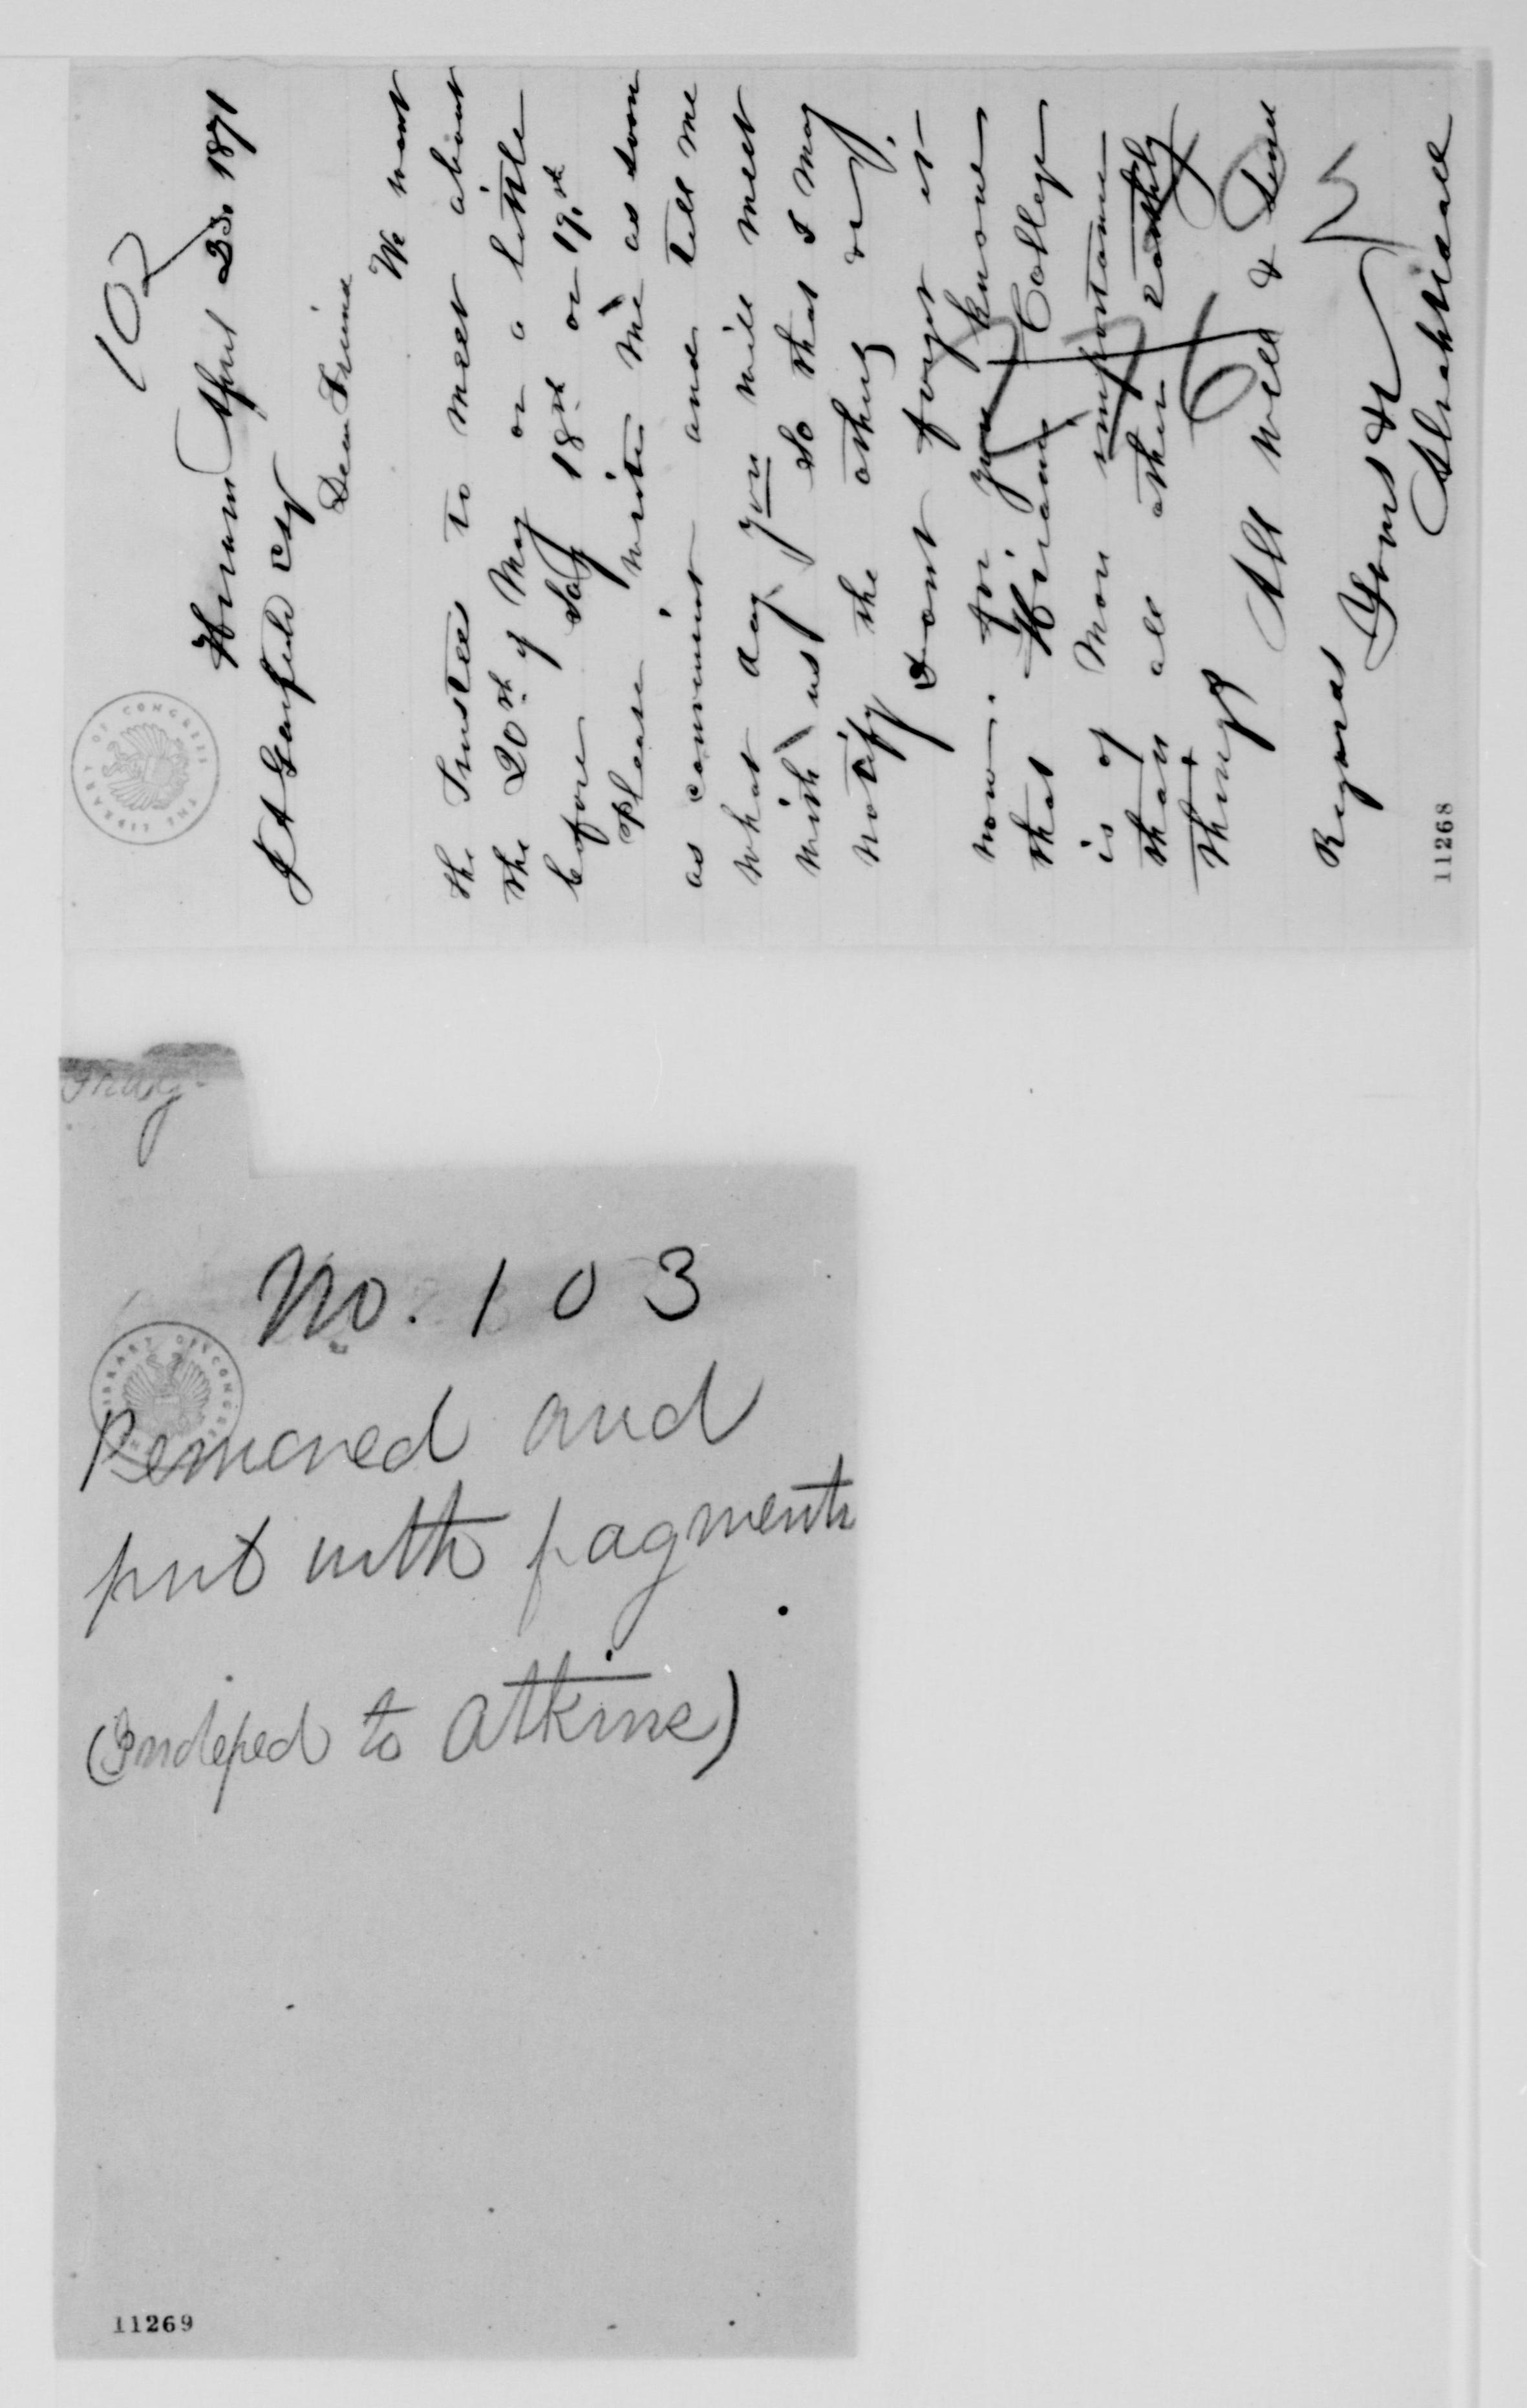 102
Hiram April 23. 1871
J A Garfield Esq
Dear Friend
We want
the Trustees to meet about
the 20th of May or a little
before say 18th or 19th
Please write me as soon
as convenient and tell me
what day you will meet
with us so that I may
notify the others of it.
Dont forget it
now. for you know
that Hiram College
is of More importance
than all other earthly
things
All well & send
Regards
Yours &c
11268
LIBRARY OF CONGRESS
No. 103
Removed and
put with fragments
(Indexed to Atkins)
THE LIBRARY OF CONGRESS
11269